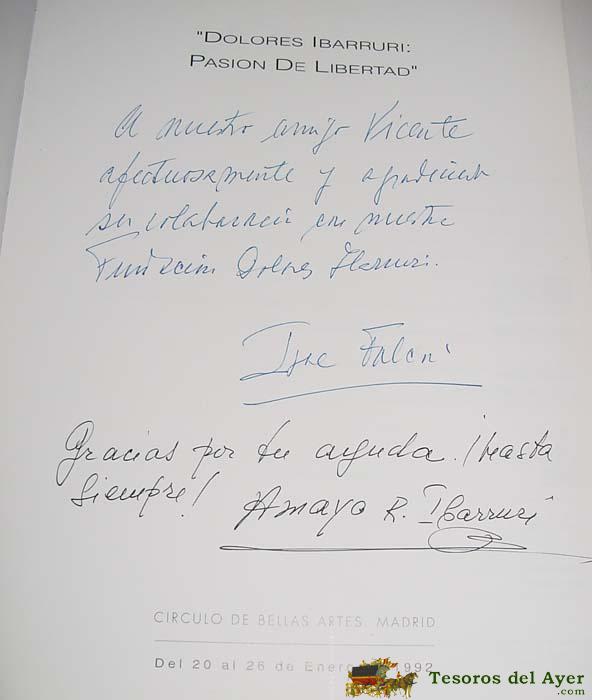 "DOLORES IBARRURI:
PASION DE LIBERTAD"
A nuestro amigo Vicente
afectuosamente y agradeciendo
su colaboración con nuestra
Fundación Dolores Ibarruri.
Irene Falcón
Gracias por tu ayuda. ¡Hasta
siempre!
Amaya R. Ibarruri
CIRCULO DE BELLAS ARTES. MADRID
Del 20 al 26 de Enero 1992
Tesoros del Ayer
.com